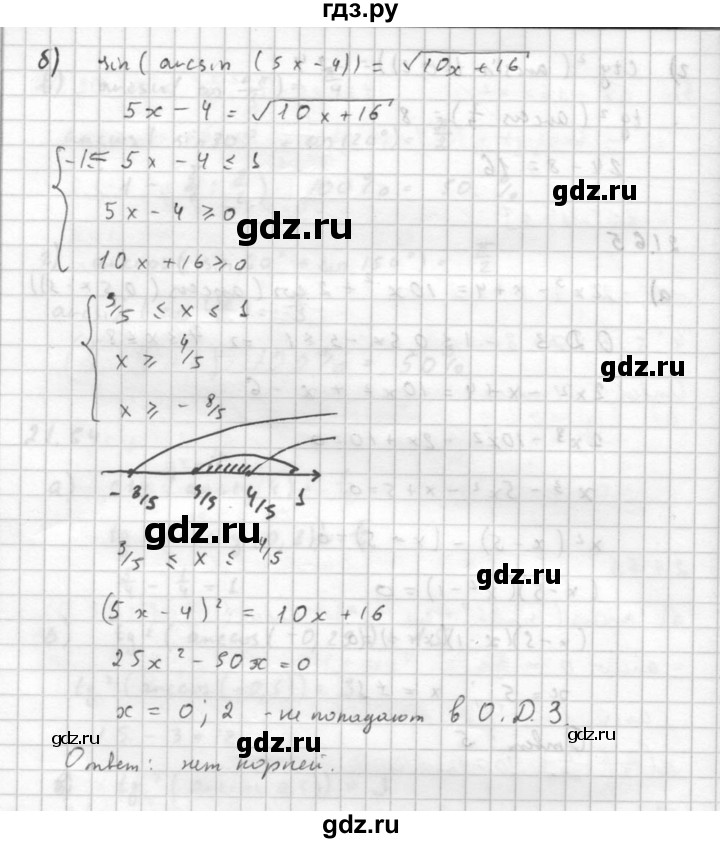 гдз.ру
б) sin(arcsin (5x-4)) = √10x+16
5x-4 = √10x+16
-1 ≤ 5x-4 ≤ 1
5x-4 ≥ 0
gdz.ru
gdz.ru
10x+16 ≥ 0
3/5 ≤ x ≤ 1
x ≥ 4/5
gdz.ru
x ≥ - 8/5
-8/5 3/5 4/5 1
gdz.ru
3/5 ≤ x ≤ 4/5
gdz.ru
(5x-4)² = 10x+16
25x² - 50x = 0
x = 0; 2 - не попадают в О.Д.З.
gdz.ru
gdz.ru
Ответ: нет корней.
gdz.ru